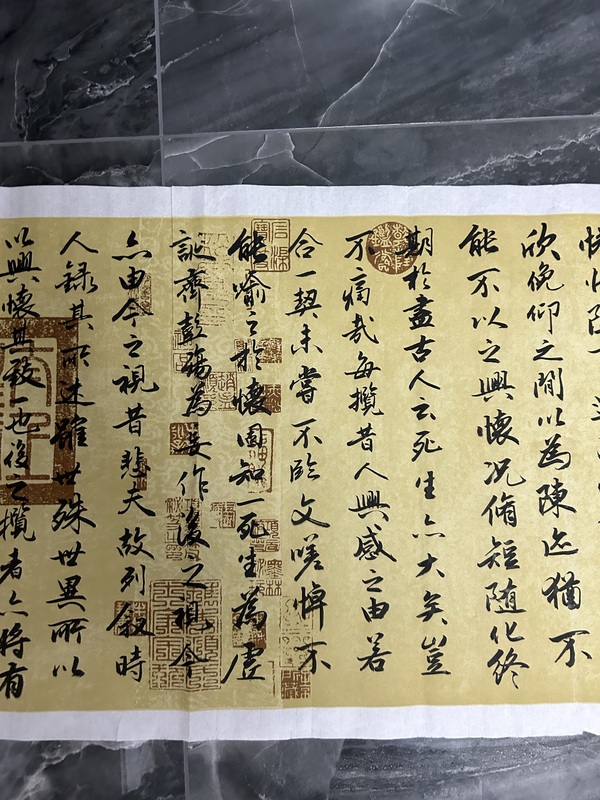 欣俛仰之閒以為陳迹猶不
能不以之興懷況脩短隨化終
期於盡古人云死生亦大矣豈
不痛哉每攬昔人興感之由若
合一契未嘗不臨文嗟悼不
能喻之於懷固知一死生為虛
誕齊彭殤為妄作後之視今
亦由今之視昔悲夫故列敘時
人錄其所述雖世殊世異所以
以興懷其致一也後之攬者亦將有